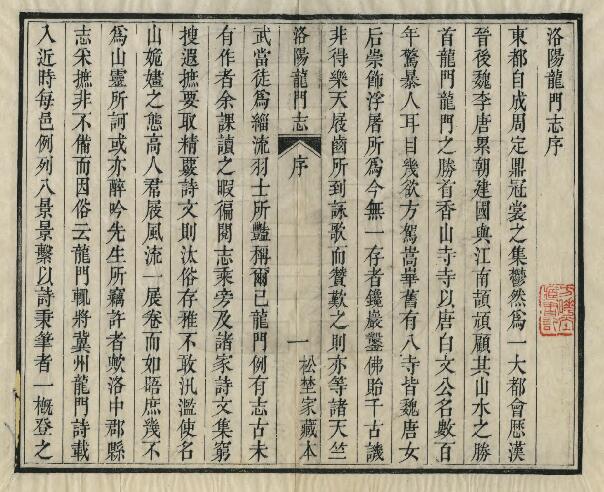 洛陽龍門志序
東都自成周定鼎冠裳之集鬱然爲一大都會歷漢
晉後魏李唐累朝建國與江南頡頏顧其山水之勝
首龍門龍門之勝首香山寺寺以唐白文公名數百
年驚暴人耳目幾欲方駕嵩華舊有八寺皆魏唐女
后崇飾浮屠所爲今無一存者鑱巖鑿佛貽千古譏
非得樂天屐齒所到詠歌而贊歎之則亦等諸天竺
洛陽龍門志 序 一 松埜家藏本
武當徒爲緇流羽士所豔稱爾已龍門例有志古未
有作者余課讀之暇徧閱志乘旁及諸家詩文集窮
搜遐摭要取精覈詩文則汰俗存雅不敢汎濫使名
山姽嫿之態高人裙屐風流一展卷而如晤庶幾不
爲山靈所訶或亦醉吟先生所竊許者歟洛中郡縣
志采摭非不備而因俗云龍門輒將冀州龍門詩載
入近時每邑例列八景景繫以詩秉筆者一概登之